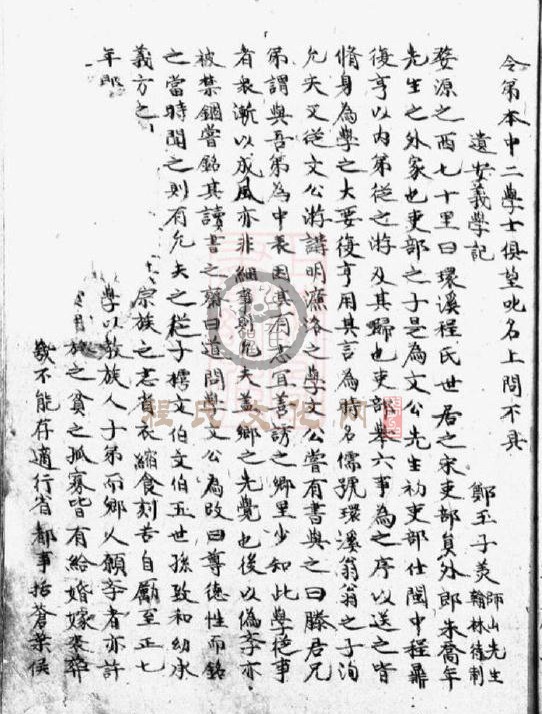 令弟本中二學士俱望叱名上問不具
遺安義學記
鄭玉子美師山先生翰林待制
婺源之西七十里曰環溪程氏世居之宋吏部員外郎朱喬年
先生之外家也吏部之子是為文公先生初吏部仕閩中程鼎
復亨以内弟從之游及其歸也吏部舉六事為之序以送之皆
脩身為學之大要復亨用其言為時名儒號環溪翁翁之子洵
允夫又從文公游講明濂洛之學文公嘗有書與之曰滕君兄
弟謂與吾弟為中表因其有志宜善誘之鄉里少知此學從事
者衆漸以成風亦非細事則允夫盖鄉之先覺也後以偽李亦
被禁錮嘗銘其讀書之齋曰道問學文公為改曰尊德性而銘
之當時聞之則有允夫之從子樗文伯文伯五世孫致和幼承
義方之 宗族之志甞衣縮食刻苦自勵至正七
年即 學以教族人子弟而鄉人願李者亦許
族之貧之孤寡皆有給婚嫁喪葬
歲不能存適行省都事括蒼葉侯
程氏文化网